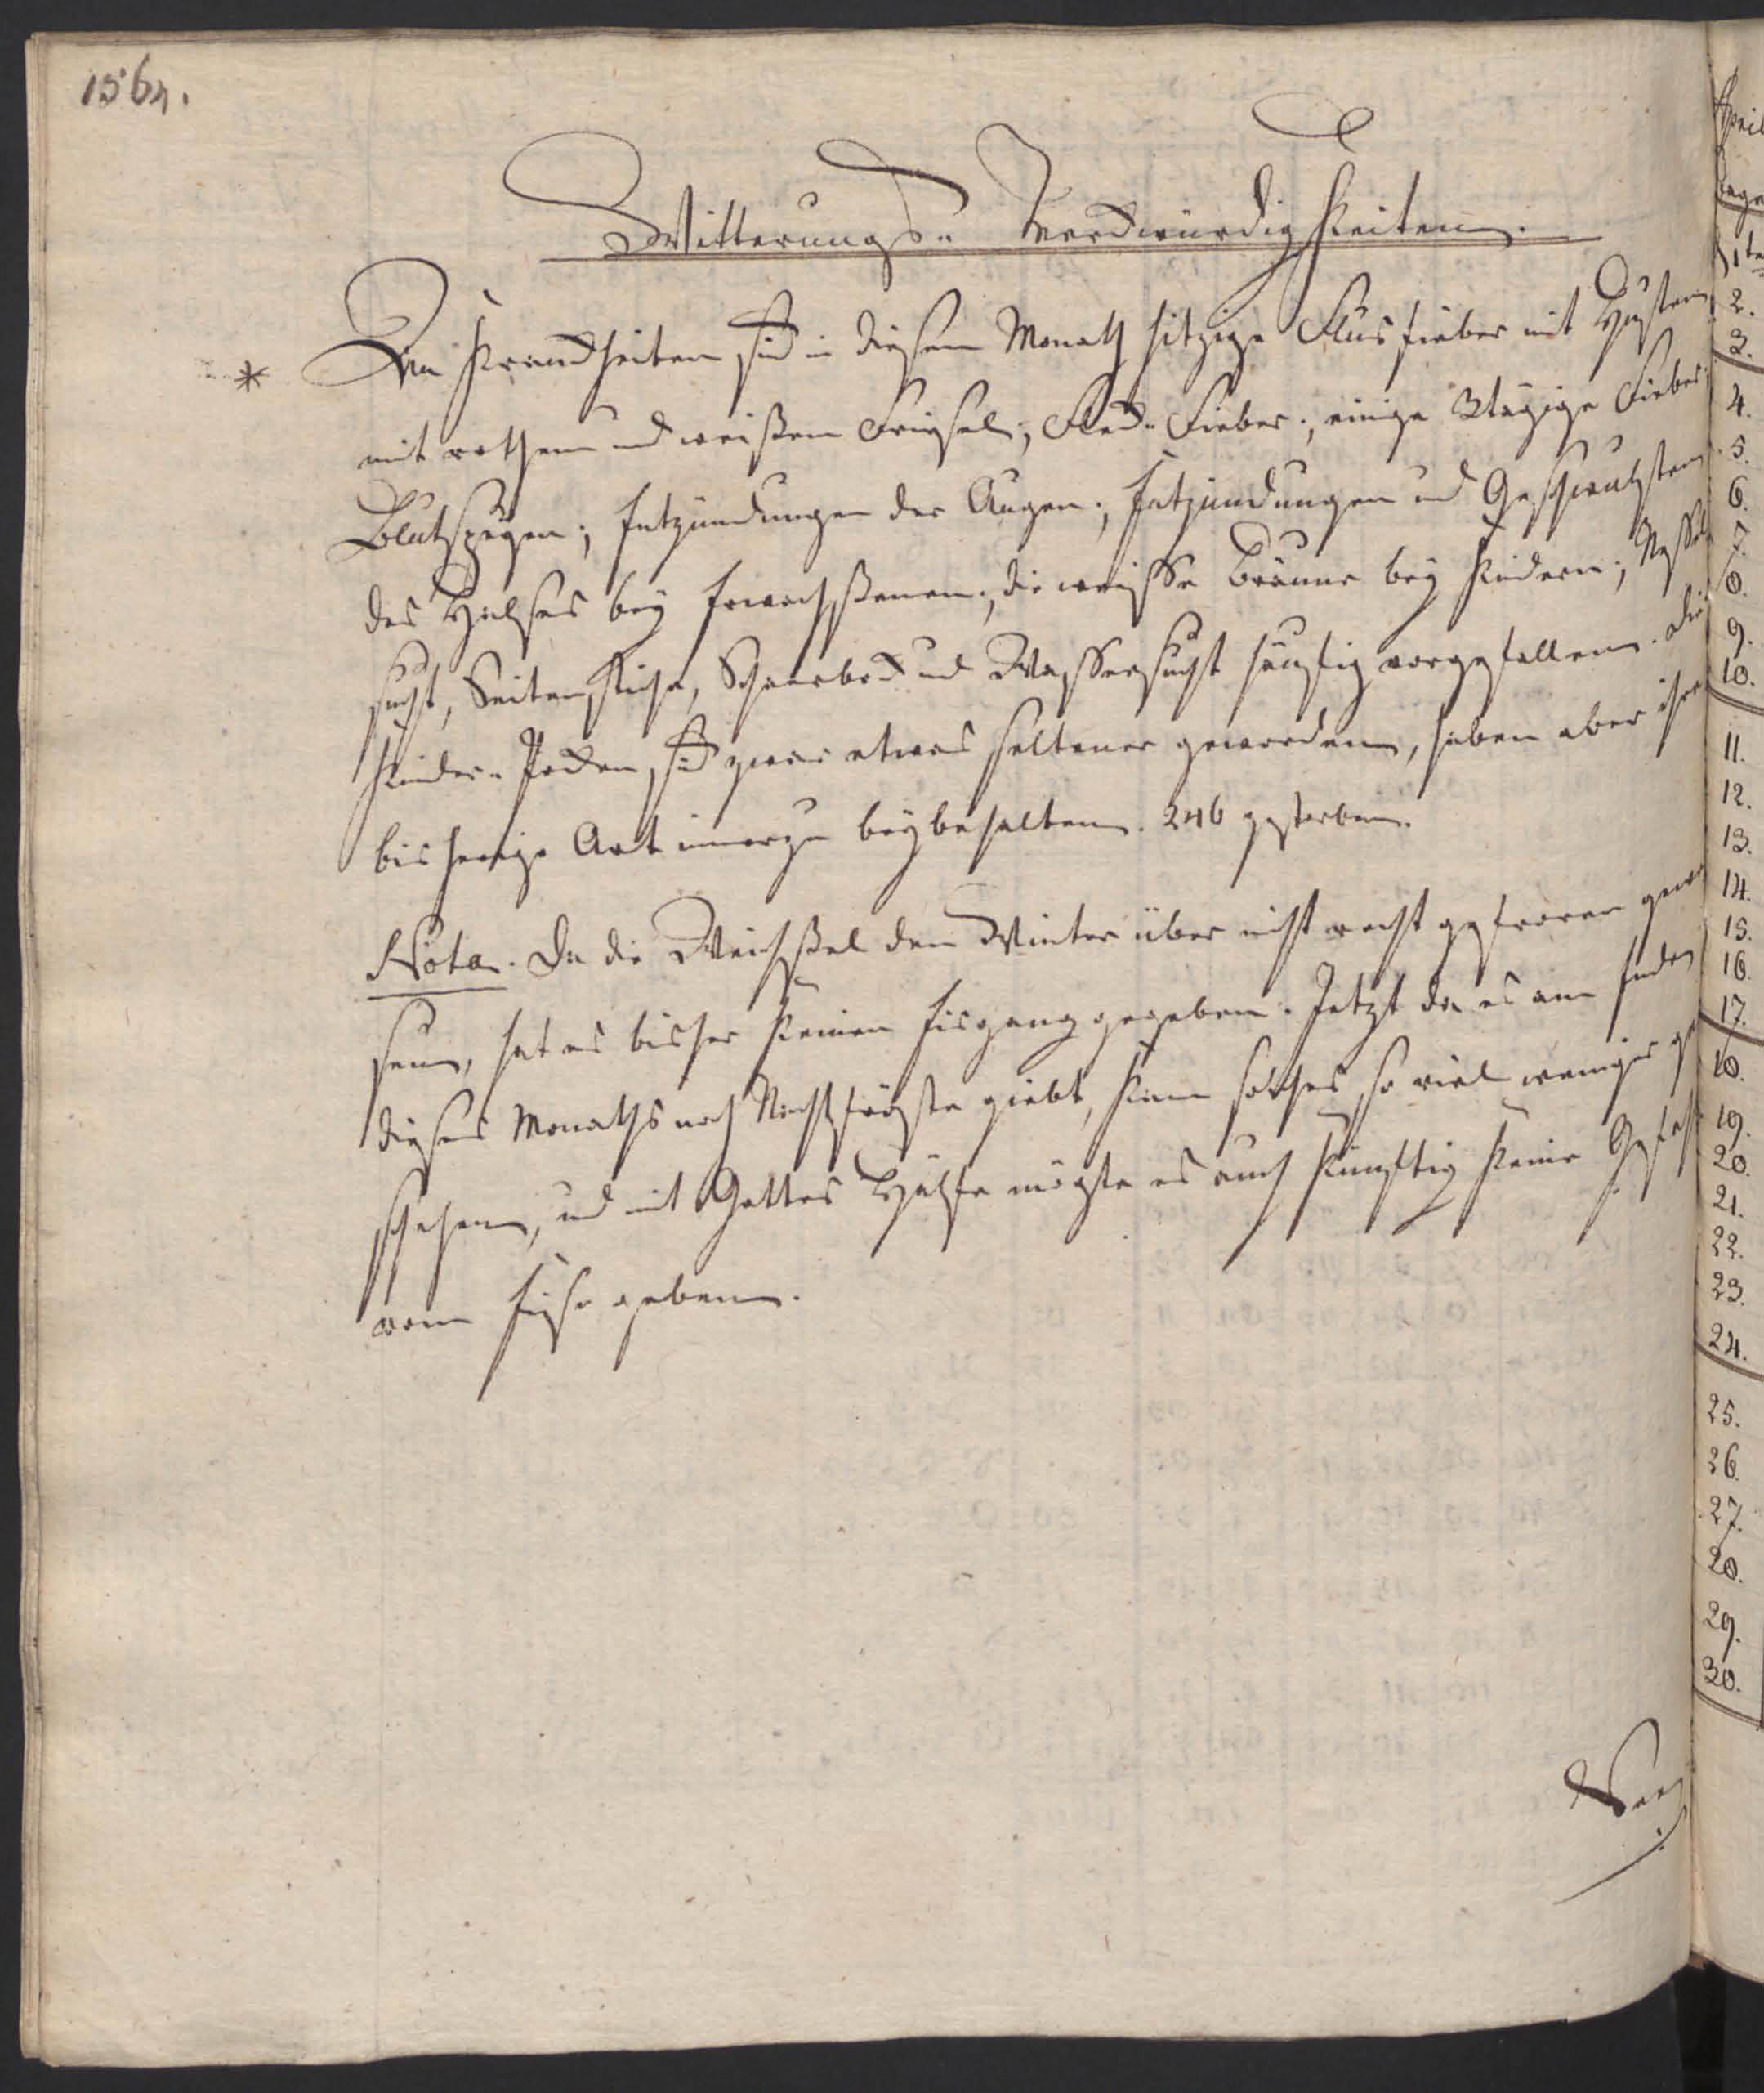 1564.
Witterungs- Merckwürdigkeiten.
* An Kranckheiten sind in diesem Monath hitzige Flusfieber mit Husten
mit rothem und weißem Frießel; Fleck-Fieber; einige 3tägige Fieber;
Blutspeyen; Entzündungen der Augen; Entzündungen und Geschwulsten
des Halses bey Erwachßenen; die weisse Bräune bey Kindern;
sucht, Seitenstiche, Schaarbock und Wassersucht häufig vorgefallen. Die
Kinder-Pocken sind zwar etwas seltener geworden, haben aber ihre
bisherige Art immerzu beybehalten. 246 gestorben.
Nota. Da die Weichßel den Winter über nicht recht gefroren gewe
sen, hat es bisher keinen Eisgang gegeben. Jetzt da es am Ende
dieses Monaths noch Nachtfröste giebt, kann solches so viel weniger ge
schehen, und mit Gottes Hülfe mögte es auch künftig keine Gefahr
vom Eise geben.
April
Tage
1te
2.
3.
4.
5.
6.
7.
8.
9.
10.
11.
12.
13.
14.
15.
16.
17.
18.
19.
20.
21.
22.
23.
24.
25.
26.
27.
28.
29.
30.